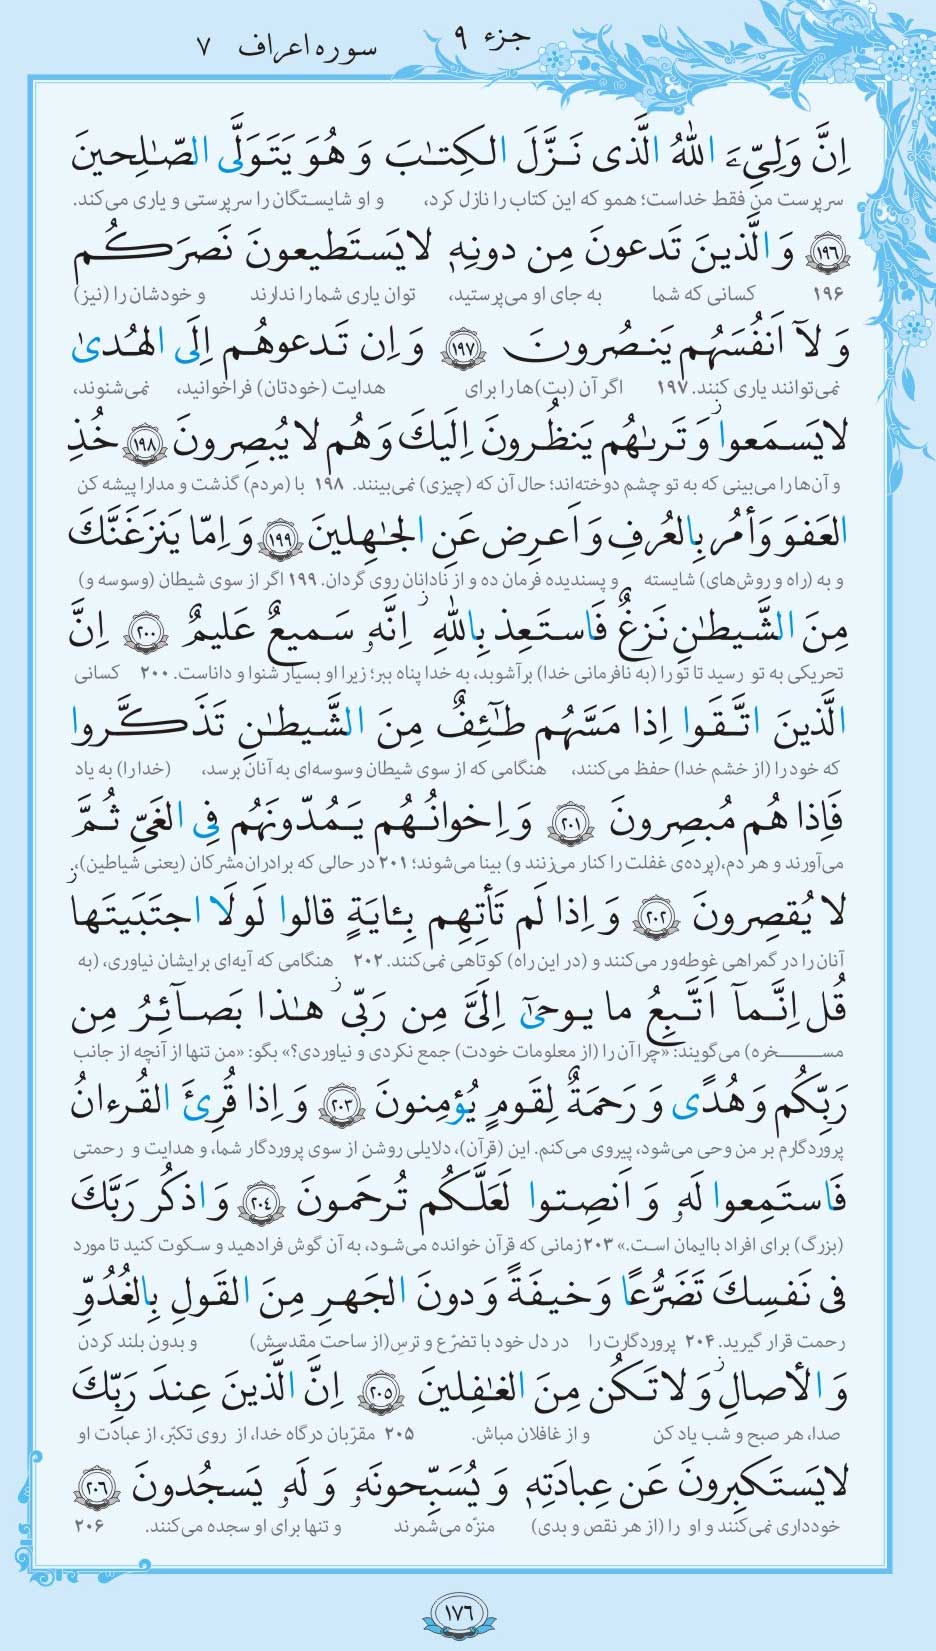 جزء ۹ سوره اعراف ۷
اِنَّ وَلِـِّۧیَ اللّٰهُ الَّذی نَـزَّلَ الـکِتٰـبَ وَ هُوَ یَتَوَلَّی الصّٰـلِحینَ
سرپرست من فقط خداست؛ همو که این کتاب را نازل کرد، و او شایستگان را سرپرستی و یاری می‌کند.
﴿۱۹۶﴾ وَ الَّذینَ تَدعونَ مِن دونِهٖ لایَستَطیعونَ نَصرَکُم
۱۹۶ کسانی که شما به جای او می‌پرستید، توان یاری شما را ندارند و خودشان را (نیز)
وَ لاۤ اَنفُسَهُم یَنصُرونَ ﴿۱۹۷﴾ وَ اِن تَدعوهُم اِلَی الهُدیٰ
نمی‌توانند یاری کنند. ۱۹۷ اگر آن (بت)ها را برای هدایت (خودتان) فراخوانید، نمی‌شنوند،
لایَسمَعوا ز وَ تَرىٰهُم یَنظُرونَ اِلَیكَ وَ هُم لا یُبصِرونَ ﴿۱۹۸﴾ خُذِ
و آن‌ها را می‌بینی که به تو چشم دوخته‌اند؛ حال آن که (چیزی) نمی‌بینند. ۱۹۸ با (مردم) گذشت و مدارا پیشه کن
العَفوَ وَ أمُر بِالعُرفِ وَ اَعرِض عَنِ الجٰـهِلینَ ﴿۱۹۹﴾ وَ اِمّا یَنزَغَنَّكَ
و به (راه و روش‌های) شایسته و پسندیده فرمان ده و از نادانان روی گردان. ۱۹۹ اگر از سوی شیطان (وسوسه و)
مِنَ الشَّیطٰـنِ نَزغٌ فَاستَعِذ بِاللّٰهِ ز اِنَّهٗ سَمیعٌ عَلیمٌ ﴿۲۰۰﴾ اِنَّ
تحریکی به تو رسید تا تو را (به نافرمانی خدا) برآشوبد، به خدا پناه ببر؛ زیرا او بسیار شنوا و داناست. ۲۰۰ کسانی
الَّذینَ اتَّقَوا اِذا مَسَّهُم طـٰٓئِفٌ مِنَ الشَّیطٰـنِ تَذَکَّروا
که خود را (از خشم خدا) حفظ می‌کنند، هنگامی که از سوی شیطان وسوسه‌ای به آنان برسد، (خدا را) به یاد
فَاِذا هُم مُبصِرونَ ﴿۲۰۱﴾ وَ اِخوانُهُم یَمُدّونَهُم فِی الغَیِّ ثُمَّ
می‌آورند و هر دم، (پرده‌ی غفلت را کنار می‌زنند و) بینا می‌شوند؛ ۲۰۱ در حالی که برادران مشرکان (یعنی شیاطین)،
لا یُقصِرونَ ﴿۲۰۲﴾ وَ اِذا لَم تَأتِهِم بِـٔایَةٍ قالوا لَولَا اجتَبَیتَها ز
آنان را در گمراهی غوطه‌ور می‌کنند و (در این راه) کوتاهی نمی‌کنند. ۲۰۲ هنگامی که آیه‌ای برایشان نیاوری، (به
قُل اِنَّماۤ اَتَّبِعُ ما یوحیٰۤ اِلَیَّ مِن رَبّی ز هـٰذا بَصـاۤئِرُ مِن
مسخره) می‌گویند: «چرا آن را (از معلومات خودت) جمع نکردی و نیاوردی؟» بگو: «من تنها از آنچه از جانب
رَبِّکُم وَ هُدًی وَ رَحمَةٌ لِقَومٍ یُؤمِنونَ ﴿۲۰۳﴾ وَ اِذا قُرِئَ القُرءانُ
پروردگارم بر من وحی می‌شود، پیروی می‌کنم. این (قرآن)، دلایلی روشن از سوی پروردگار شما، و هدایت و رحمتی
فَاستَمِعوا لَهٗ وَ اَنصِتوا لَعَلَّکُم تُرحَمونَ ﴿۲۰۴﴾ وَ اذکُر رَبَّكَ
(بزرگ) برای افراد باایمان است.» ۲۰۳ زمانی که قرآن خوانده می‌شود، به آن گوش فرادهید و سکوت کنید تا مورد
فی نَفسِكَ تَضَرُّعًا وَ خیفَةً وَ دونَ الجَهرِ مِنَ القَولِ بِالغُدُوِّ
رحمت قرار گیرید. ۲۰۴ پروردگارت را در دل خود با تضرّع و ترس (از ساحت مقدسش) و بدون بلند کردن
وَ الأصالِ ز وَ لا تَکُن مِنَ الغٰـفِلینَ ﴿۲۰۵﴾ اِنَّ الَّذینَ عِندَ رَبِّكَ
صدا، هر صبح و شب یاد کن و از غافلان مباش. ۲۰۵ مقرّبان درگاه خدا، از روی تکبّر، از عبادت او
لایَستَکبِرونَ عَن عِبادَتِهٖ وَ یُسَبِّحونَهٗ وَ لَهٗ یَسجُدونَ ﴿۲۰۶﴾
خودداری نمی‌کنند و او را (از هر نقص و بدی) منزّه می‌شمرند و تنها برای او سجده می‌کنند. ۲۰۶
۱۷۶